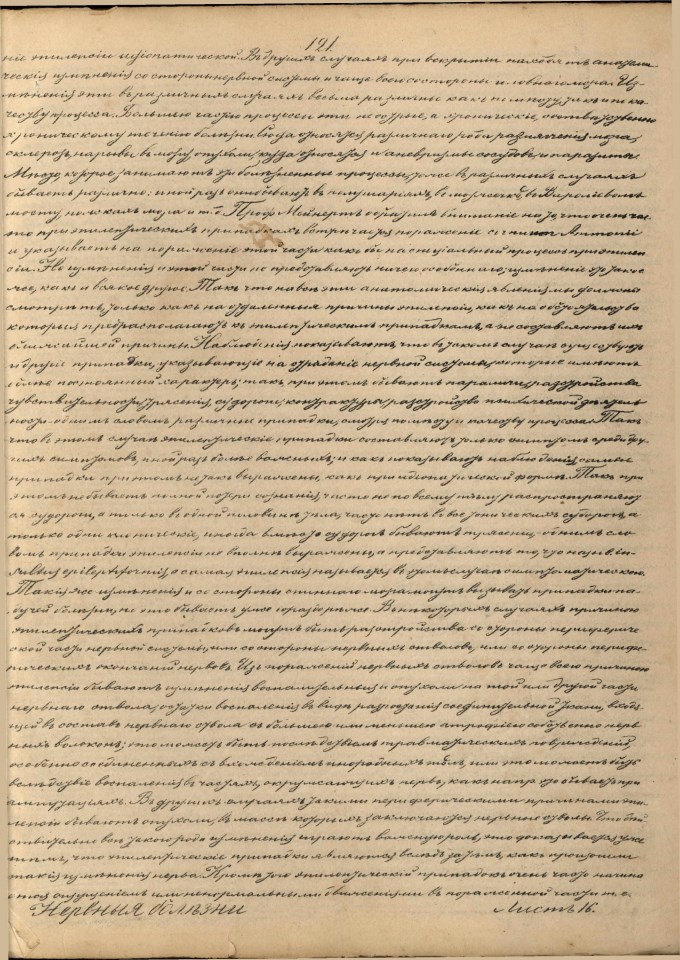 121.
ніе эпилепсіи идіопатической. Въ другихъ случаяхъ при вскрытіи находятъ анатоми-
ческія измѣненія со стороны нервной системы и чаще всего со стороны головного мозга. Из-
мѣненія эти въ различныхъ случаяхъ весьма различны какъ по мѣсту, такъ и по ка-
честву процесса. Большею частью процессы эти не острые, а хроническіе, соотвѣтственно
хроническому теченію болѣзни. Сюда относятся различнаго рода размягченія мозга,
склерозъ, нарывы въ мозгу, опухоли, сюда относятся и аневризмы сосудовъ, и паразиты.
Мѣсто, которое занимаютъ эти болѣзненные процессы, тоже въ различныхъ случаяхъ
бываетъ различно: иной разъ они бываютъ въ полушаріяхъ, въ мозжечкѣ, въ Вароліевомъ
мосту, ножкахъ мозга и т.д. Проф. Мейнертъ обратилъ вниманіе на то, что очень час-
то при эпилептическихъ припадкахъ встрѣчается пораженіе Аммоніи
и указываетъ на пораженіе этой части какъ бы на спеціальный процессъ при эпилеп-
сіи. Но измѣненія и этой части не представляютъ ничего особеннаго; измѣненіе это такое
же, какъ и всякое другое. Такъ что на всѣ эти анатомическія явленія мы должны
смотрѣть только какъ на отдаленныя причины эпилепсіи, какъ на обстоятельства
которыя предрасполагаютъ къ эпилептическимъ припадкамъ, а не составляютъ ихъ
ближайшей причины. Наблюденія показываютъ, что въ такомъ случаѣ существуютъ
и другіе припадки, указывающіе на страданіе нервной системы, которые имѣютъ
болѣе постоянный характеръ; такъ при этомъ бываютъ параличи, разстройства
чувствительности, трясенія, судороги, контрактуры, разстройство психической дѣятель-
ности, однимъ словомъ различные припадки, смотря по мѣсту и качеству процесса. Такъ
что въ этомъ случаѣ эпилептическіе припадки составляютъ только симптомъ среди дру-
гихъ симптомовъ, иной разъ болѣе важныхъ; и какъ показываютъ наблюденія, самые
припадки при этомъ не такъ выражены, какъ при идіопатической формѣ. Такъ при
этомъ не бываетъ полной потери сознанія, часто не по всему тѣлу распространяют-
ся судороги, а только въ одной половинѣ тѣла, часто нѣтъ вовсе тоническихъ судорогъ, а
только одни клоническія, иногда вмѣсто судорогъ бываютъ трясенія, однимъ сло-
вомъ припадки эпилепсіи не вполнѣ выражены, а представляютъ то, что назыв. in-
sultus epileptiformis, а самая эпилепсія называется въ этомъ случаѣ симптоматическою.
Такія же измѣненія и со стороны спинного мозга могутъ вызвать припадки па-
дучей болѣзни, но это бываетъ уже гораздо рѣже. Въ нѣкоторыхъ случаяхъ причиною
эпилептическихъ припадковъ могутъ быть разстройства со стороны перифериче-
ской части нервной системы, или со стороны нервныхъ стволовъ, или со стороны перифе-
рическихъ окончаній нервовъ. Изъ пораженій нервныхъ стволовъ чаще всего причиною
эпилепсіи бываютъ измѣненія воспалительныя и опухоли на той или другой части
нервнаго ствола, остатки воспаленія въ видѣ разростанія соединительной ткани, входя-
щей въ составъ нервнаго ствола съ большею или меньшею атрофіею собственно нерв-
ныхъ волоконъ; это можетъ быть послѣдствіемъ травматическихъ поврежденій,
особенно соединенныхъ съ внѣдреніемъ инородныхъ тѣлъ, или это можетъ быть
вслѣдствіе воспаленія въ частяхъ, окружающихъ нервъ, какъ напр. это бываетъ при
ампутаціяхъ. Въ другихъ случаяхъ такими периферическими причинами эпи-
лепсіи бываютъ опухоли, въ массѣ которыхъ заключаются нервные стволы. Что дѣй-
ствительно всѣ такого рода измѣненія играютъ важную роль, это доказывается уже
тѣмъ, что эпилептическіе припадки являются вслѣдъ затѣмъ, какъ произошли
такія измѣненія нерва. Кромѣ того эпилептическій припадокъ очень часто начина-
ется ощущеніемъ или ненормальными движеніями въ пораженной части т. е.
Нервныя болѣзни Листъ 16.